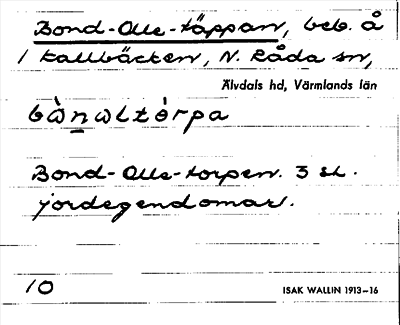 Bond-Olle-täppan, beb. å
1 Kallbäcken, N. Råda sn,
Älvdals hd, Värmlands län
bònaltèrpa
Bond-Olle-torpen. 3 st.
jordegendomar.
10
ISAK WALLIN 1913-16